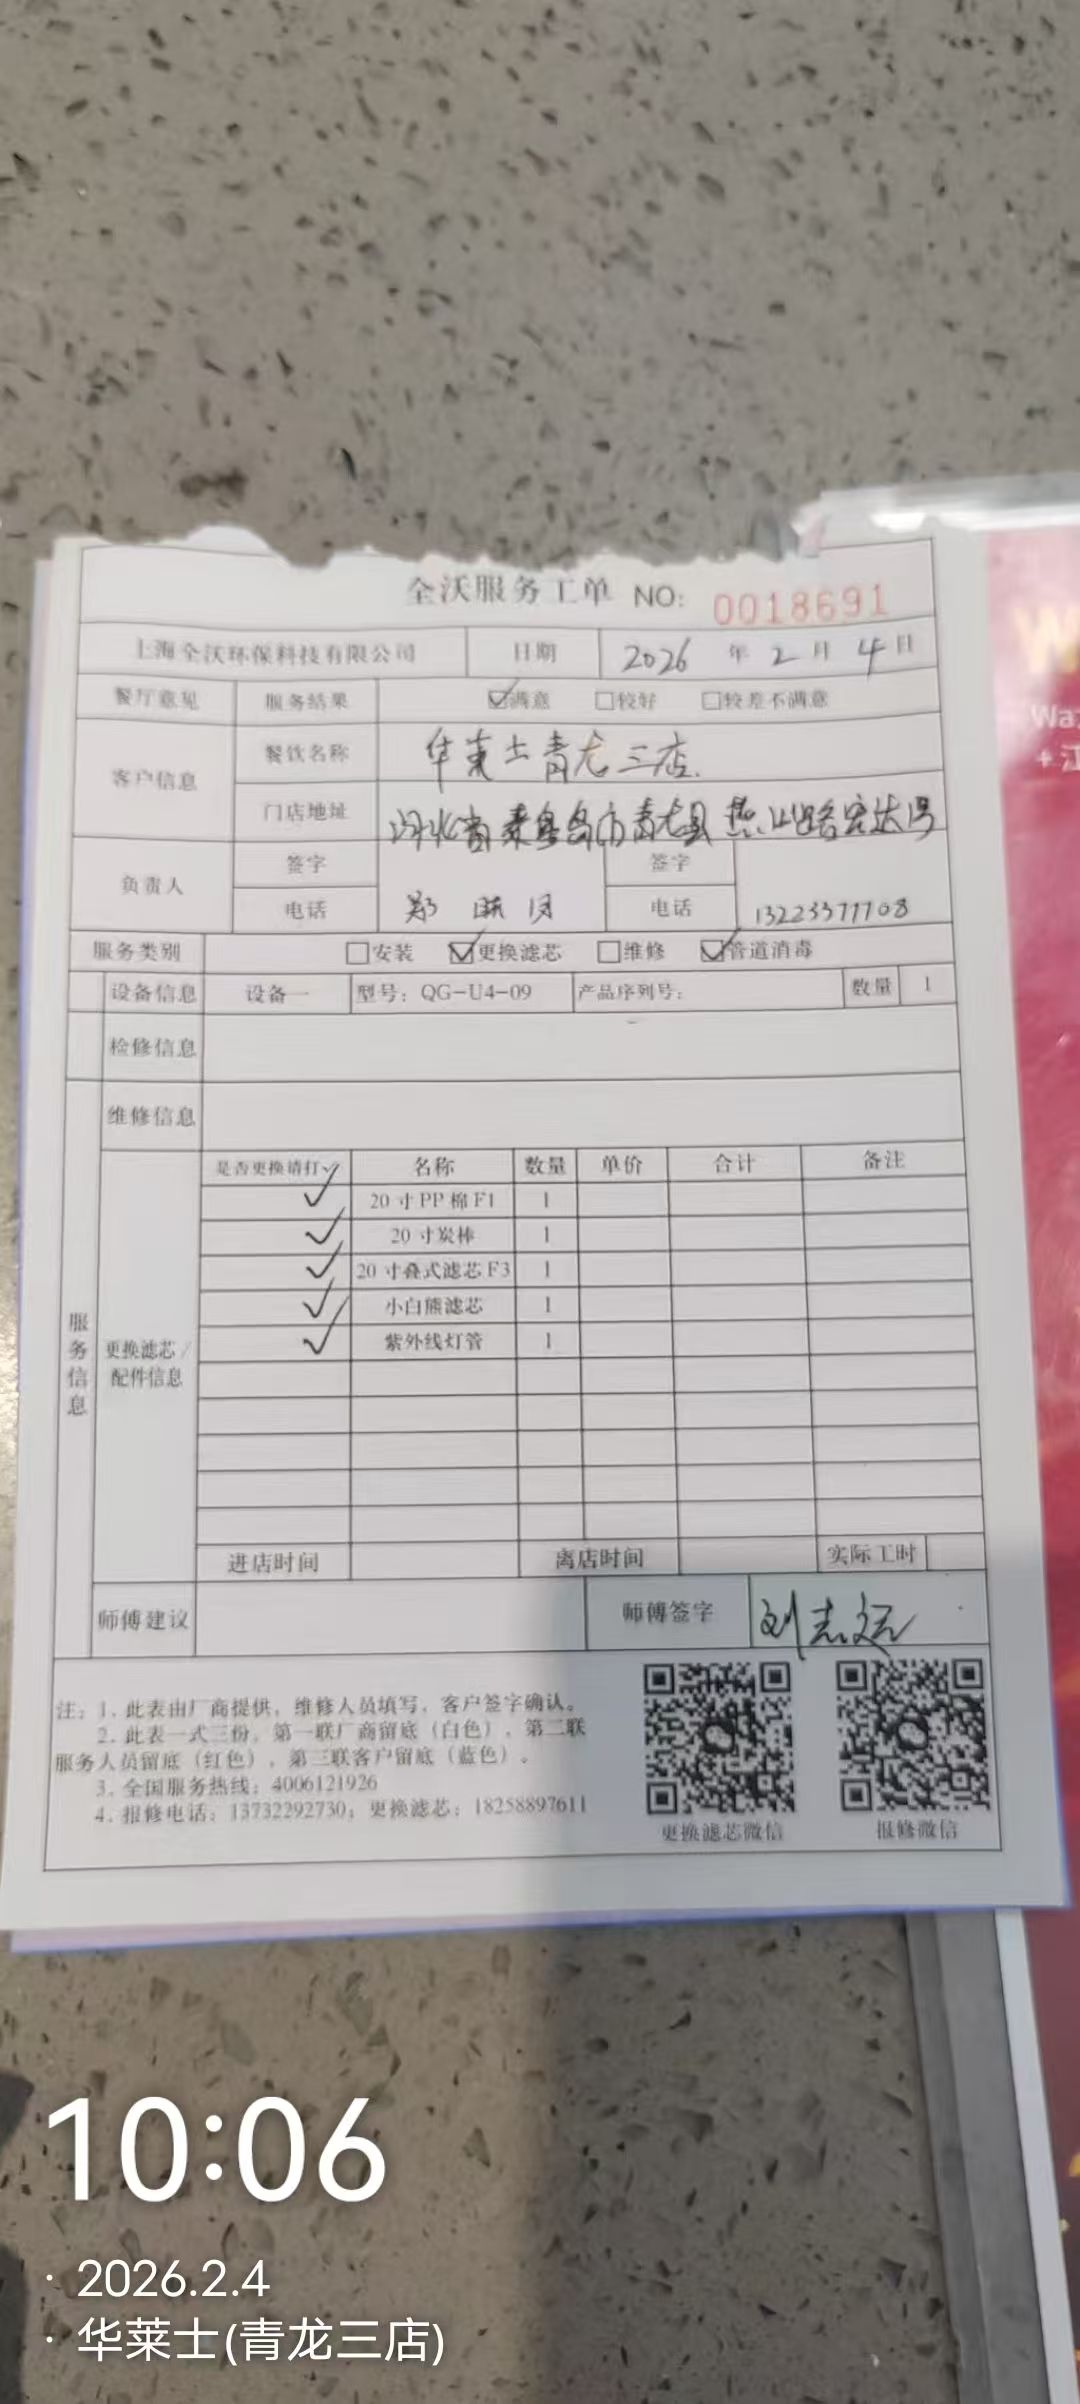 全沃服务工单 NO: 0018691
上海全沃环保科技有限公司 日期 2026 年 2 月 4 日
餐厅意见 服务结果 ☑满意 ☐较好 ☐较差不满意
客户信息 餐饮名称 华莱士青龙三店.
门店地址 河北省秦皇岛市青龙县燕山路宏达
负责人 签字 签字
电话 郑 月 电话 13223377708
服务类别 ☐安装 ☑更换滤芯 ☐维修 ☑管道消毒
设备信息 设备一 型号：QG-U4-09 产品序列号： 数量 1
检修信息
维修信息
服务信息
更换滤芯/配件信息
是否更换请打✓ 名称 数量 单价 合计 备注
✓ 20寸PP棉F1 1
✓ 20寸炭棒 1
✓ 20寸叠式滤芯F3 1
✓ 小白熊滤芯 1
✓ 紫外线灯管 1
进店时间 离店时间 实际工时
师傅建议 师傅签字 刘志远
注：1、此表由厂商提供，维修人员填写，客户签字确认。
2、此表一式三份，第一联厂商留底（白色），第二联
服务人员留底（红色），第三联客户留底（蓝色）。
3、全国服务热线：4006121926
4、报修电话：13732292730；更换滤芯：18258897611
更换滤芯微信 报修微信
Wa
10:06
· 2026.2.4
· 华莱士(青龙三店)